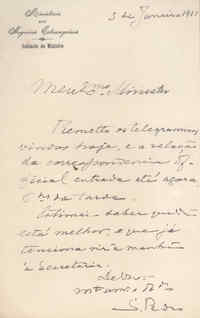 Ministerio
dos
Negocios Estrangeiros
Gabinete do Ministro
3 de Janeiro 1911
Meu Exmo Ministro
Remetto os telegrammas
vindos hoje, e a relação
da correspondencia of-
ficial entrada até agora
6 hs da tarde.
Estimei saber que
está melhor, e que já
tenciona vir amanhã
á Secretaria.